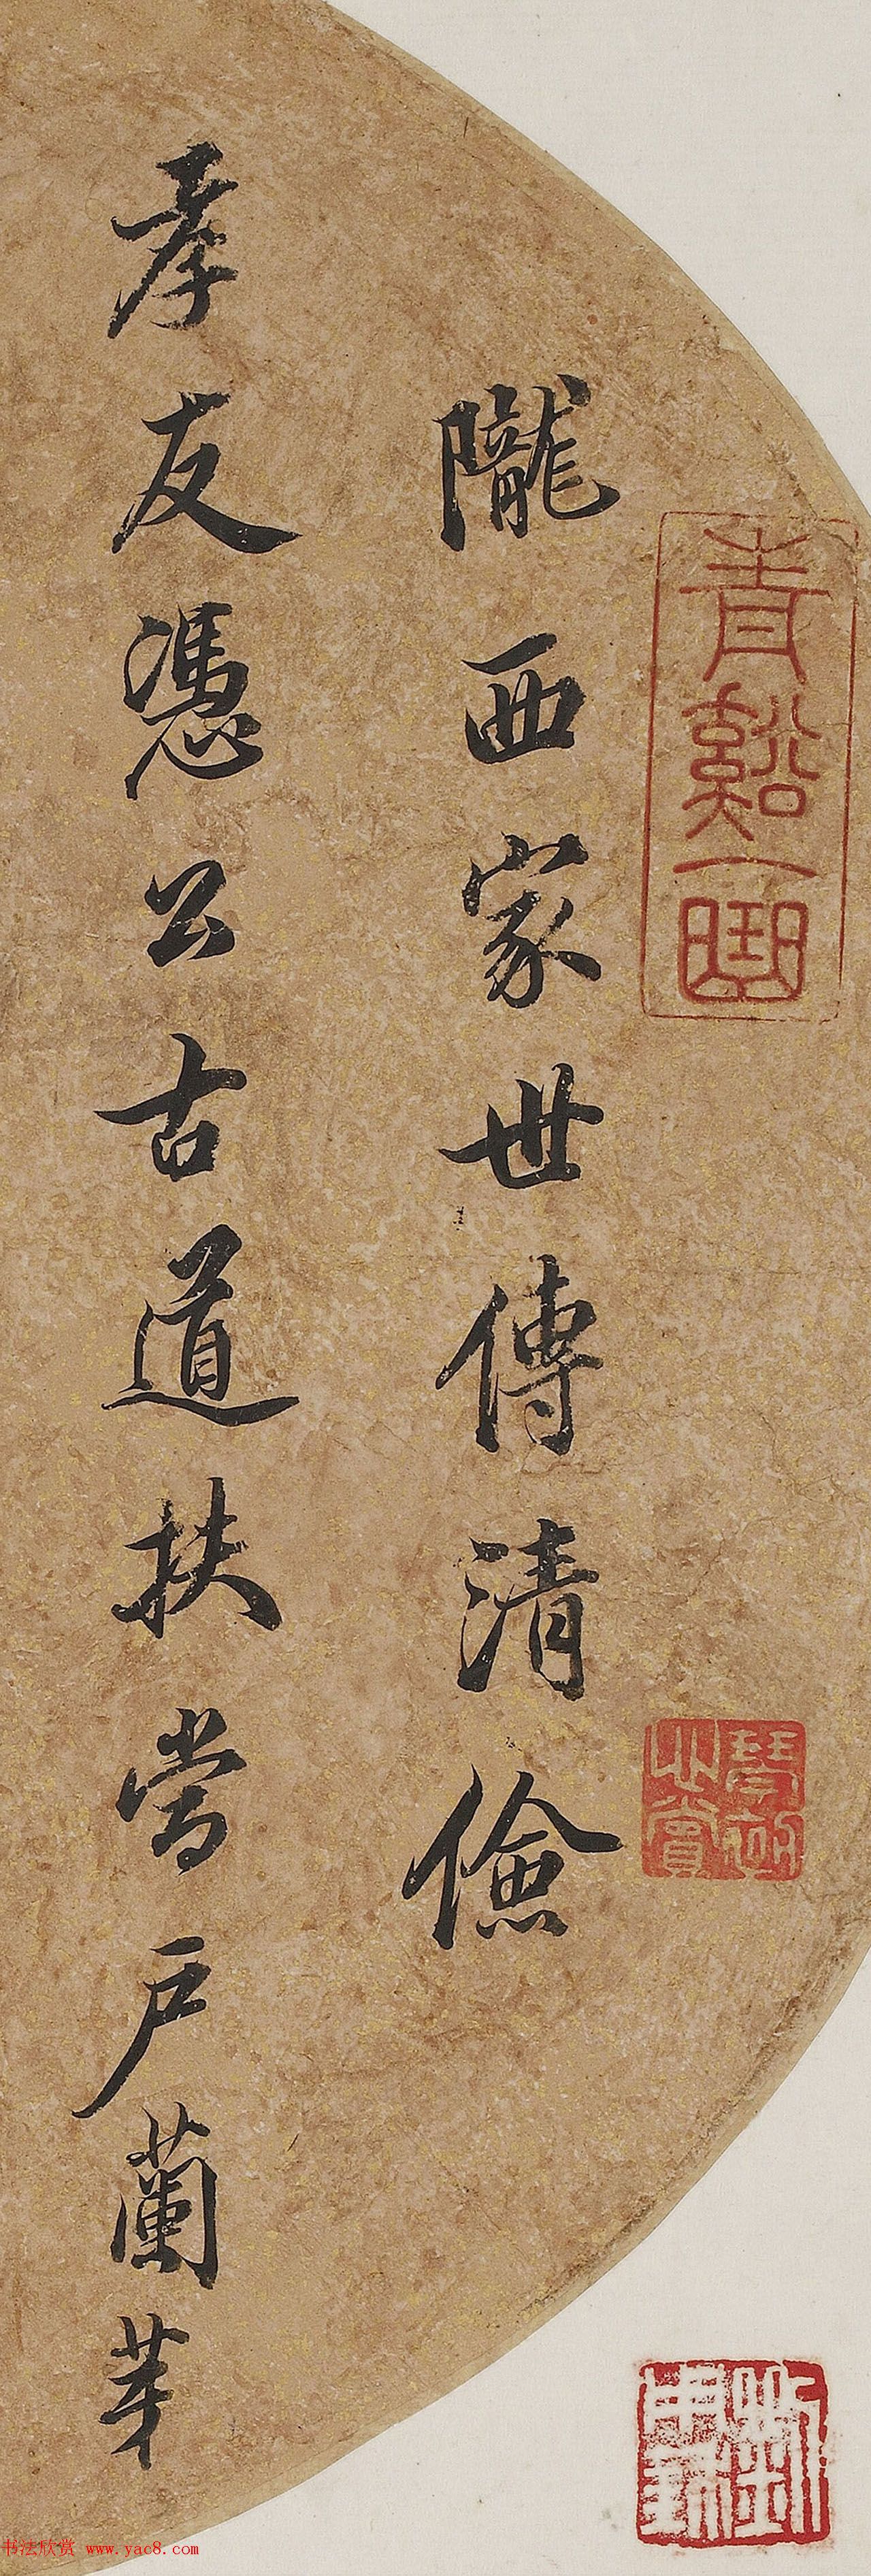 隴西家世傳清儉
孝友憑公古道扶當戶蘭芽
青谿
書法欣赏 www.yac8.com